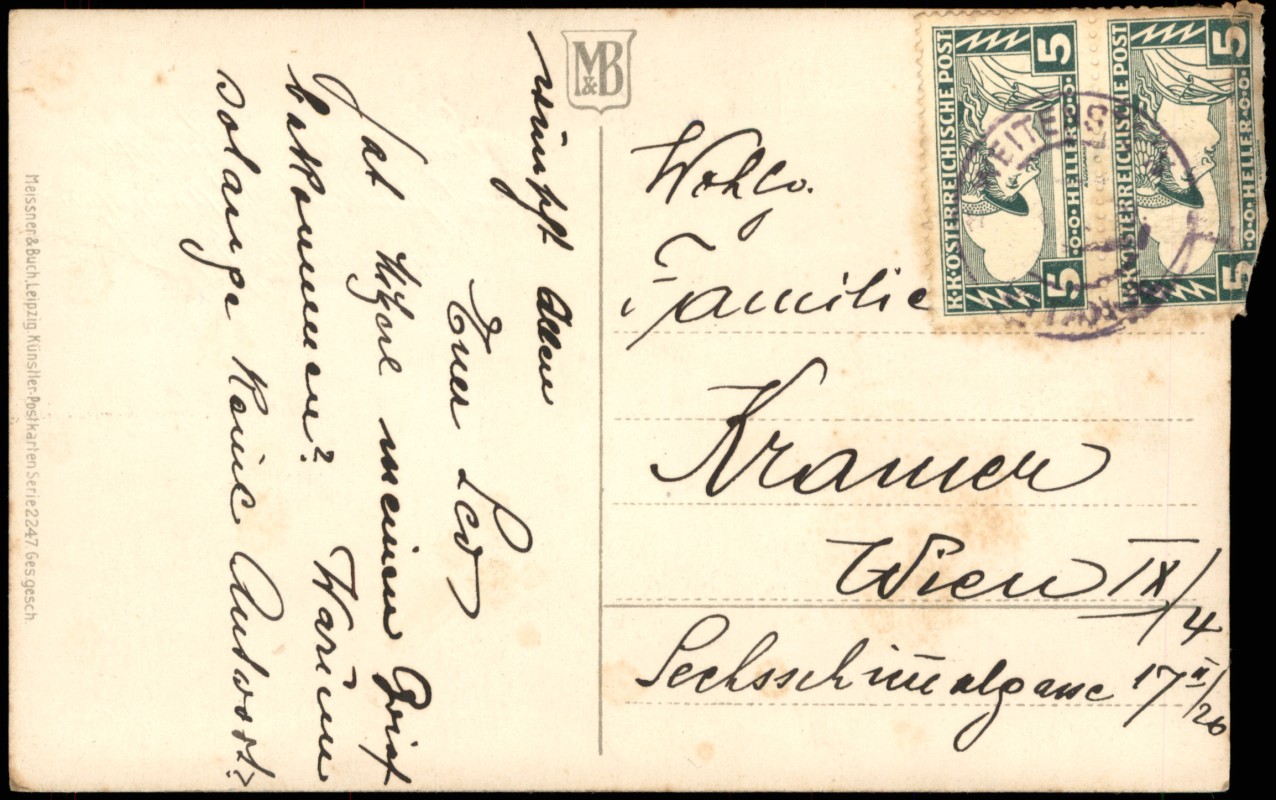 M&B
wünscht Allen
Euer Leo
Hat Ethel meinen Brief
bekommen? Warum
solange keine Antwort?
Wohlg.
Familie
Kramer
Wien IX/4
Sechsschimmelgasse 17 II/20
K·K·ÖSTERREICHISCHE POST
5 HELLER 5
K·K·ÖSTERREICHISCHE POST
5 HELLER 5
Meissner & Buch, Leipzig. Künstler-Postkarten Serie 2247 Ges. gesch.